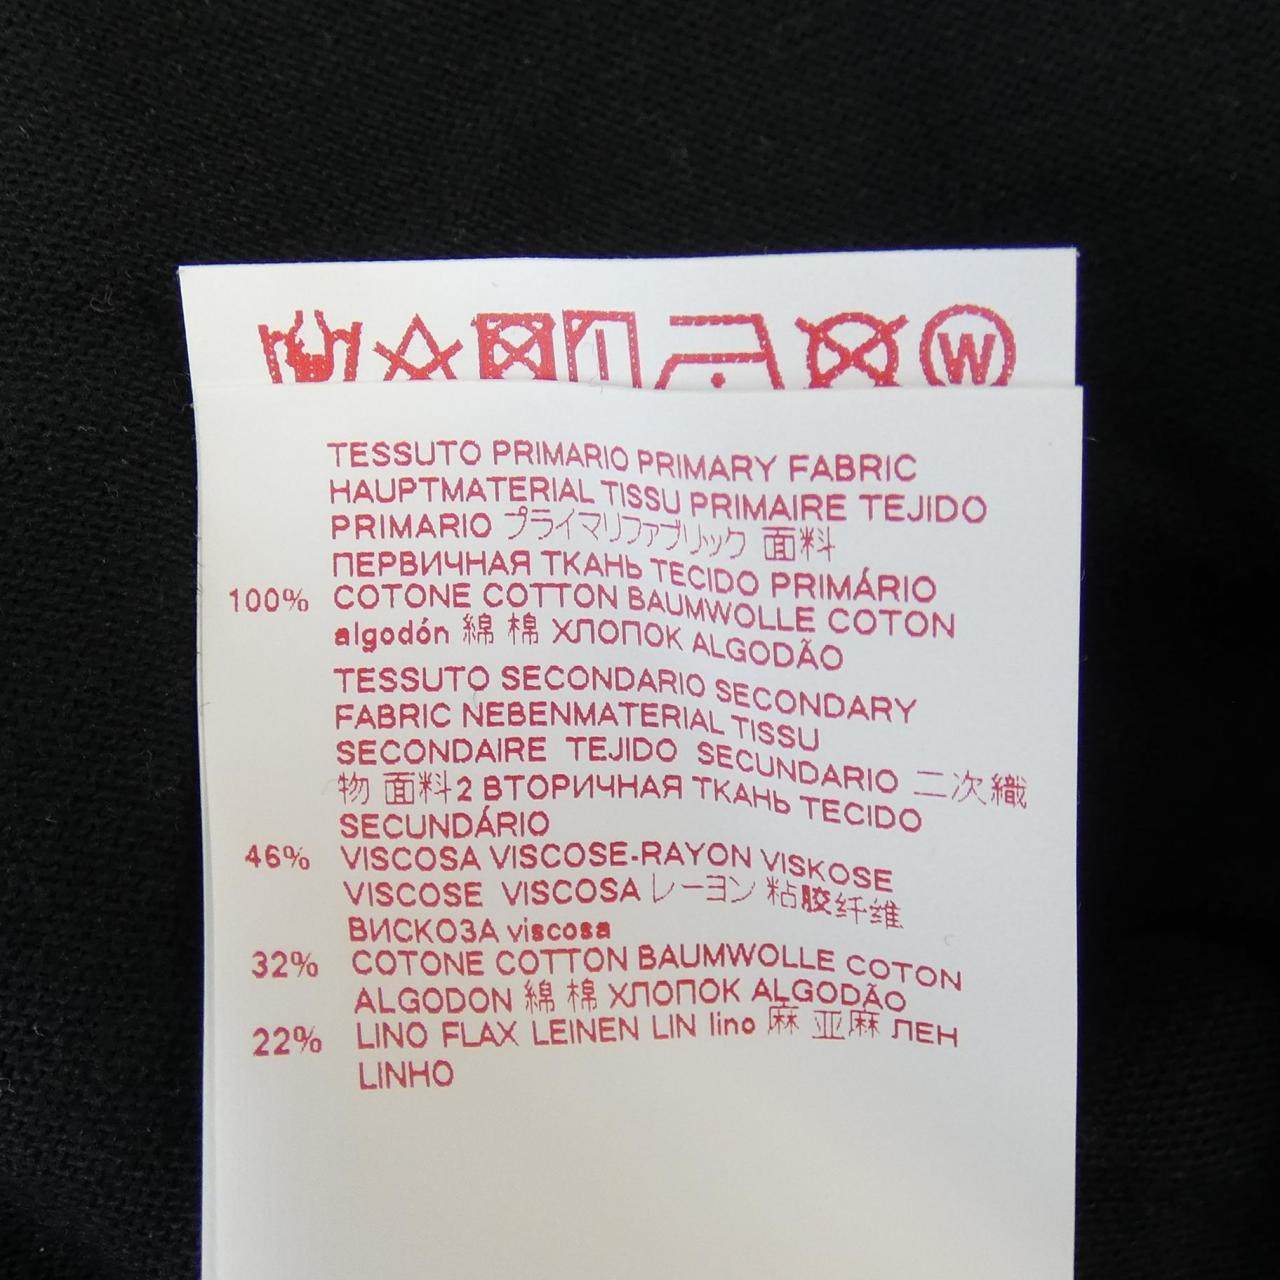 W
TESSUTO PRIMARIO PRIMARY FABRIC
HAUPTMATERIAL TISSU PRIMAIRE TEJIDO
PRIMARIO プライマリファブリック 面料
ПЕРВИЧНАЯ ТКАНЬ TECIDO PRIMÁRIO
100% COTONE COTTON BAUMWOLLE COTON
algodón 綿 棉 ХЛОПОК ALGODÃO
TESSUTO SECONDARIO SECONDARY
FABRIC NEBENMATERIAL TISSU
SECONDAIRE TEJIDO SECUNDARIO 二次織
物 面料2 ВТОРИЧНАЯ ТКАНЬ TECIDO
SECUNDÁRIO
46% VISCOSA VISCOSE-RAYON VISKOSE
VISCOSE VISCOSA レーヨン 粘胶纤维
ВИСКОЗА viscosa
32% COTONE COTTON BAUMWOLLE COTON
ALGODON 綿 棉 ХЛОПОК ALGODÃO
22% LINO FLAX LEINEN LIN lino 麻 亚麻 ЛЕН
LINHO